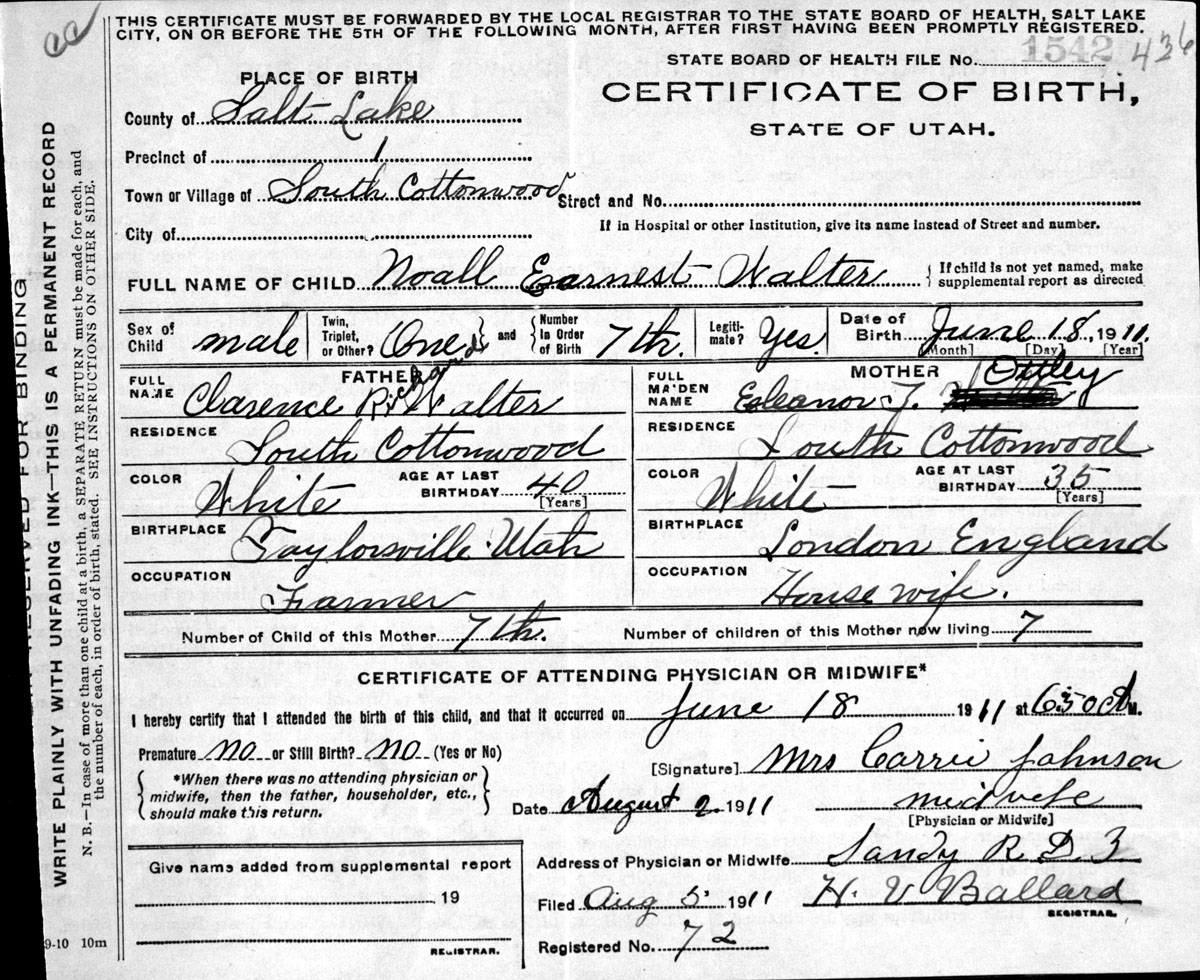 THIS CERTIFICATE MUST BE FORWARDED BY THE LOCAL REGISTRAR TO THE STATE BOARD OF HEALTH, SALT LAKE
CITY, ON OR BEFORE THE 5TH OF THE FOLLOWING MONTH, AFTER FIRST HAVING BEEN PROMPTLY REGISTERED.
1542 436
STATE BOARD OF HEALTH FILE No.
CERTIFICATE OF BIRTH,
STATE OF UTAH.
PLACE OF BIRTH
County of Salt Lake
Precinct of 1
Town or Village of South Cottonwood
Street and No.
City of
If in Hospital or other Institution, give its name instead of Street and number.
FULL NAME OF CHILD Noall Earnest Walter
If child is not yet named, make
supplemental report as directed
Sex of Child male
Twin, Triplet, or Other? One
and Number in Order of Birth 7th.
Legitimate? Yes.
Date of Birth June 18, 1911.
[Month] [Day] [Year]
FATHER
FULL NAME Clarence Walter
RESIDENCE South Cottonwood
COLOR White
AGE AT LAST BIRTHDAY 40
[Years]
BIRTHPLACE Taylorsville Utah
OCCUPATION Farmer
MOTHER
FULL MAIDEN NAME Eleanor J. Ottley
RESIDENCE South Cottonwood
COLOR White
AGE AT LAST BIRTHDAY 35
[Years]
BIRTHPLACE London England
OCCUPATION House wife.
Number of Child of this Mother 7th.
Number of children of this Mother now living 7
CERTIFICATE OF ATTENDING PHYSICIAN OR MIDWIFE*
I hereby certify that I attended the birth of this child, and that it occurred on June 18 1911 at 630 A M.
Premature no or Still Birth? no (Yes or No)
*When there was no attending physician or
midwife, then the father, householder, etc.,
should make this return.
[Signature] Mrs Carrie Johnson
Date August 2 1911
midwife
[Physician or Midwife]
Give name added from supplemental report
19
REGISTRAR.
Address of Physician or Midwife Sandy R. D. 3
Filed Aug 5 1911 H. V Ballard
REGISTRAR.
Registered No. 72
9-10 10m
RESERVED FOR BINDING
WRITE PLAINLY WITH UNFADING INK—THIS IS A PERMANENT RECORD
N. B.—In case of more than one child at a birth, a SEPARATE RETURN must be made for each, and
the number of each, in order of birth, stated. SEE INSTRUCTIONS ON OTHER SIDE.